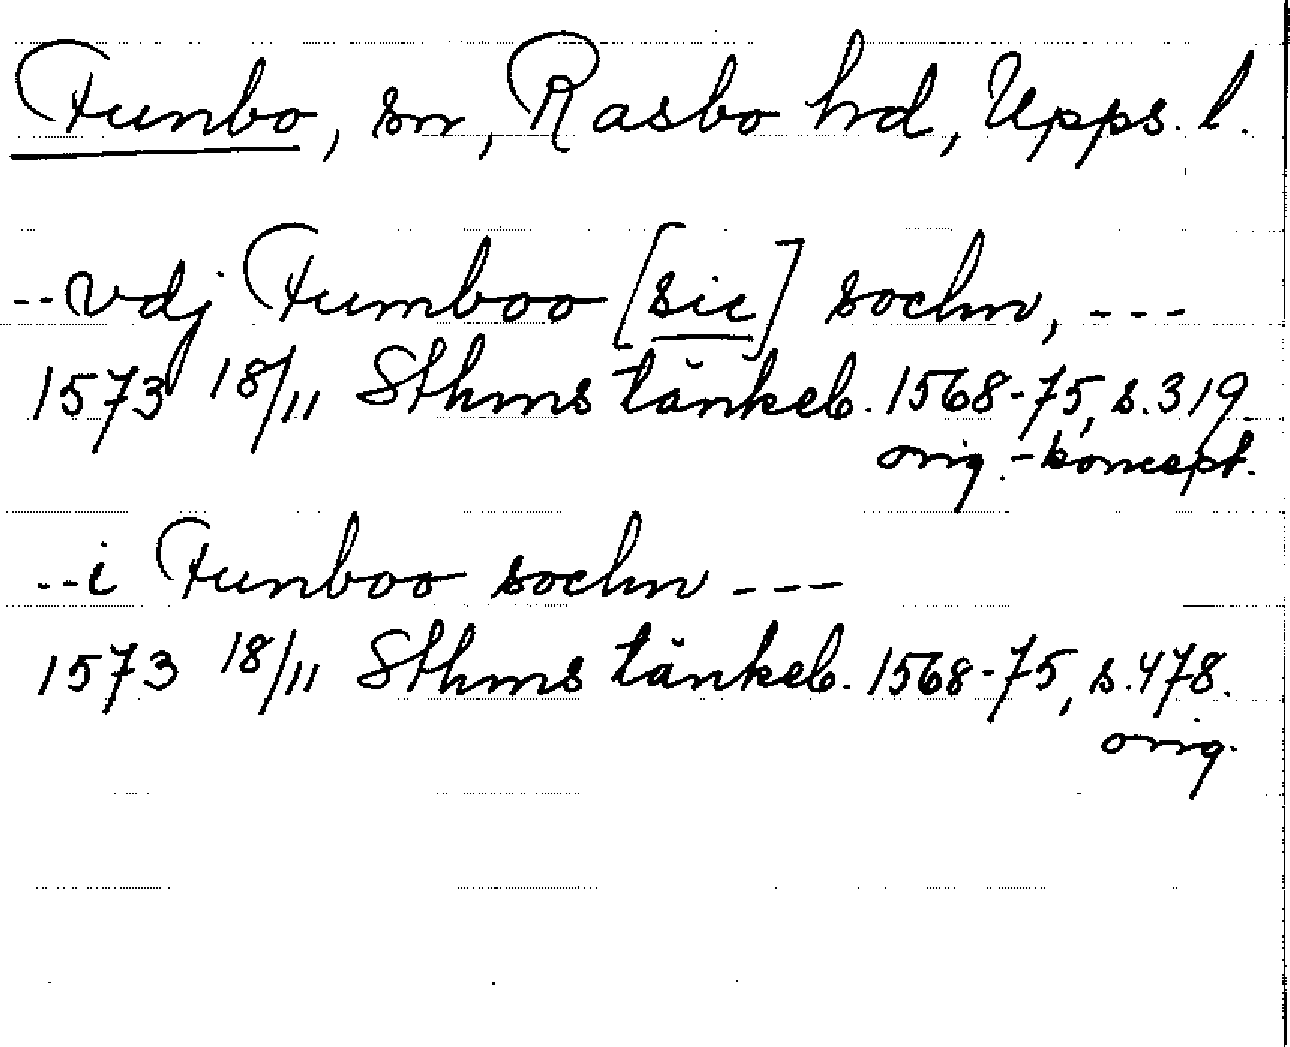 Funbo, sn, Rasbo hd, Upps. l.
--vdj Fumboo [sic] sochn, ---
1573 18/11 Sthms tänkeb. 1568-75, s.319
orig.-koncept.
--i Funboo sochn ---
1573 18/11 Sthms tänkeb. 1568-75, s.478.
orig.